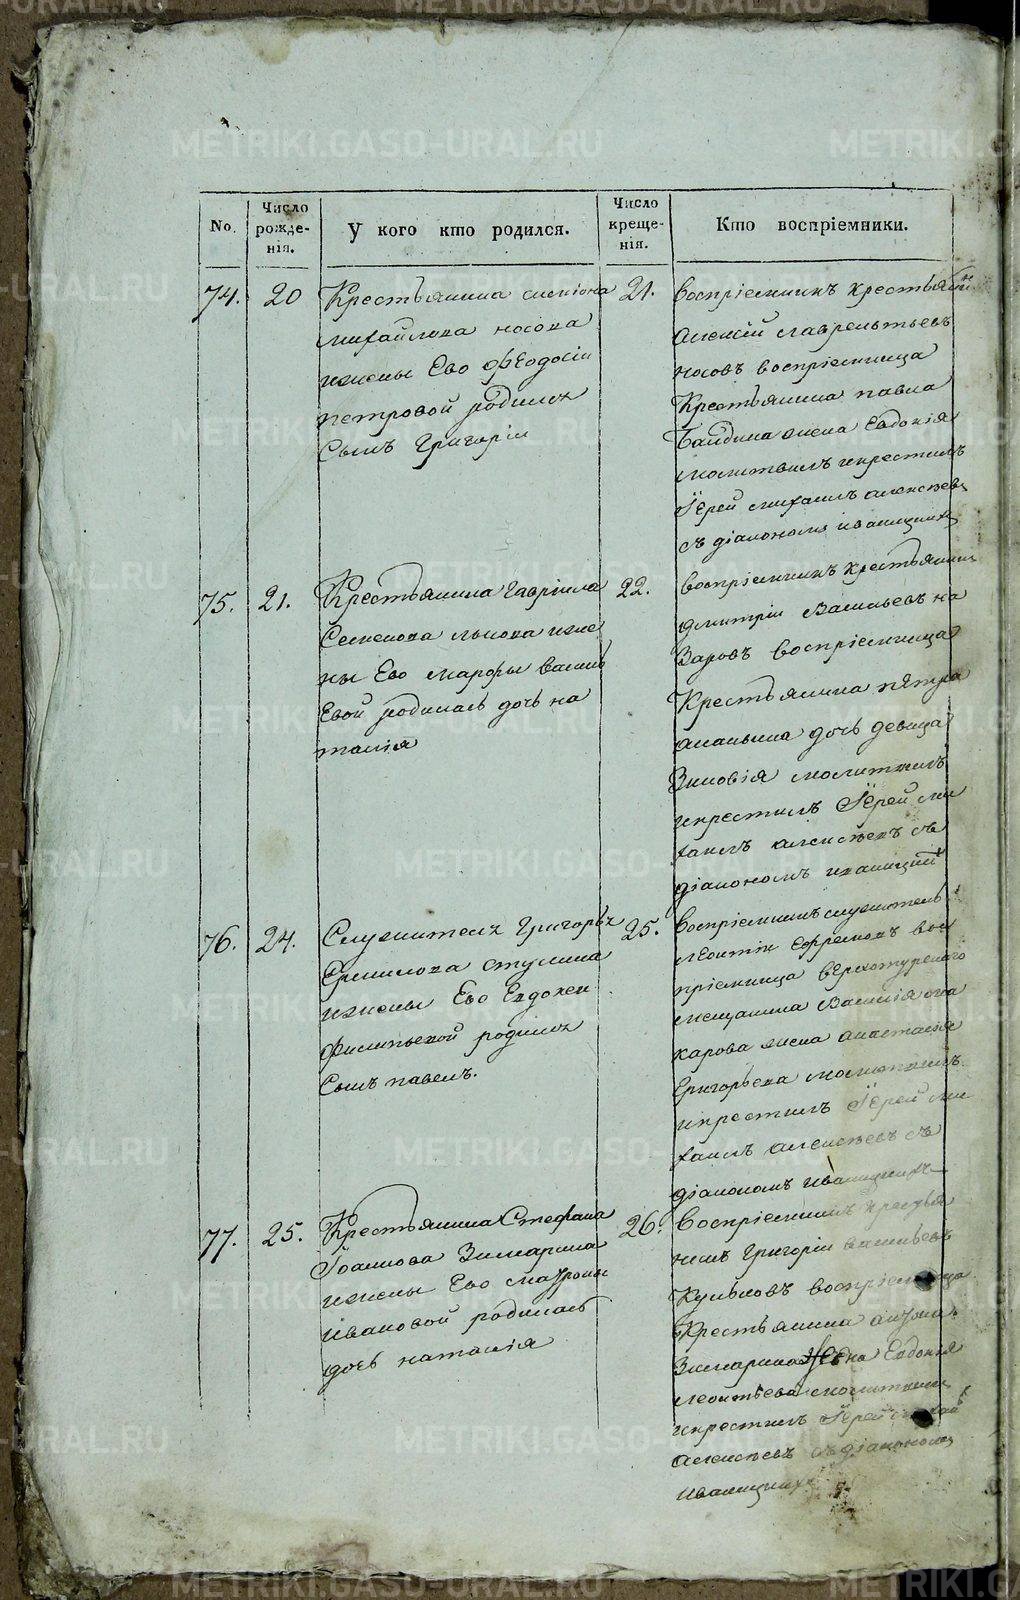 No.
Число рожде-
нія.
У кого кто родился.
Число креще-
нія.
Кто воспріемники.
74.
20
Крестьянина симіона
михайлова носова
ижены Ево Феодосіи
петровой родился
Сынъ Григорій
21.
воспріемникъ крестьянинъ
Алексій лаврентьевъ
носовъ воспріемница
Крестьянина павла
Байдина жена Евдокія
молитвилъ икрестилъ
Іерей михаилъ алексѣевъ
съ діакономъ
75.
21.
Крестьянина гавріила
Семенова львова иже
ны Ево марфы василь
Евой родилась дочь на
талія
22.
воспріемникъ крестьянинъ
дмитрій Васильевъ на
Заровъ воспріемница
Крестьянина пЕтра
ананьина дочь девица
Зиновія молитвилъ
икрестилъ Іерей ми
хаилъ алексѣевъ съ
діакономъ
76.
24.
Служителя Григорья
Ермилова стулина
ижены Ево Евдокеи
филипьевой родился
Сынъ павелъ.
25.
воспріемникъ служитель
леонтіи Ефремовъ вос
пріемница вЕрхотурскаго
мещанина Василія ма
карова жена анастасія
Григорьева молитвилъ
икрестилъ Іерей ми
хаилъ алексѣевъ съ
діакономъ
77.
25.
Крестьянина Стефана
Іоаннова Зимарина
ижены Ево матроны
ивановой родилась
дочь наталія
26.
воспріемникъ крестья
нинъ Григоріи васильевъ
Кульковъ воспріемница
Крестьянина
Зимарина жена Евдокія
леонтьева молитвилъ
икрестилъ Іерей михаилъ
алексѣевъ съ діакономъ